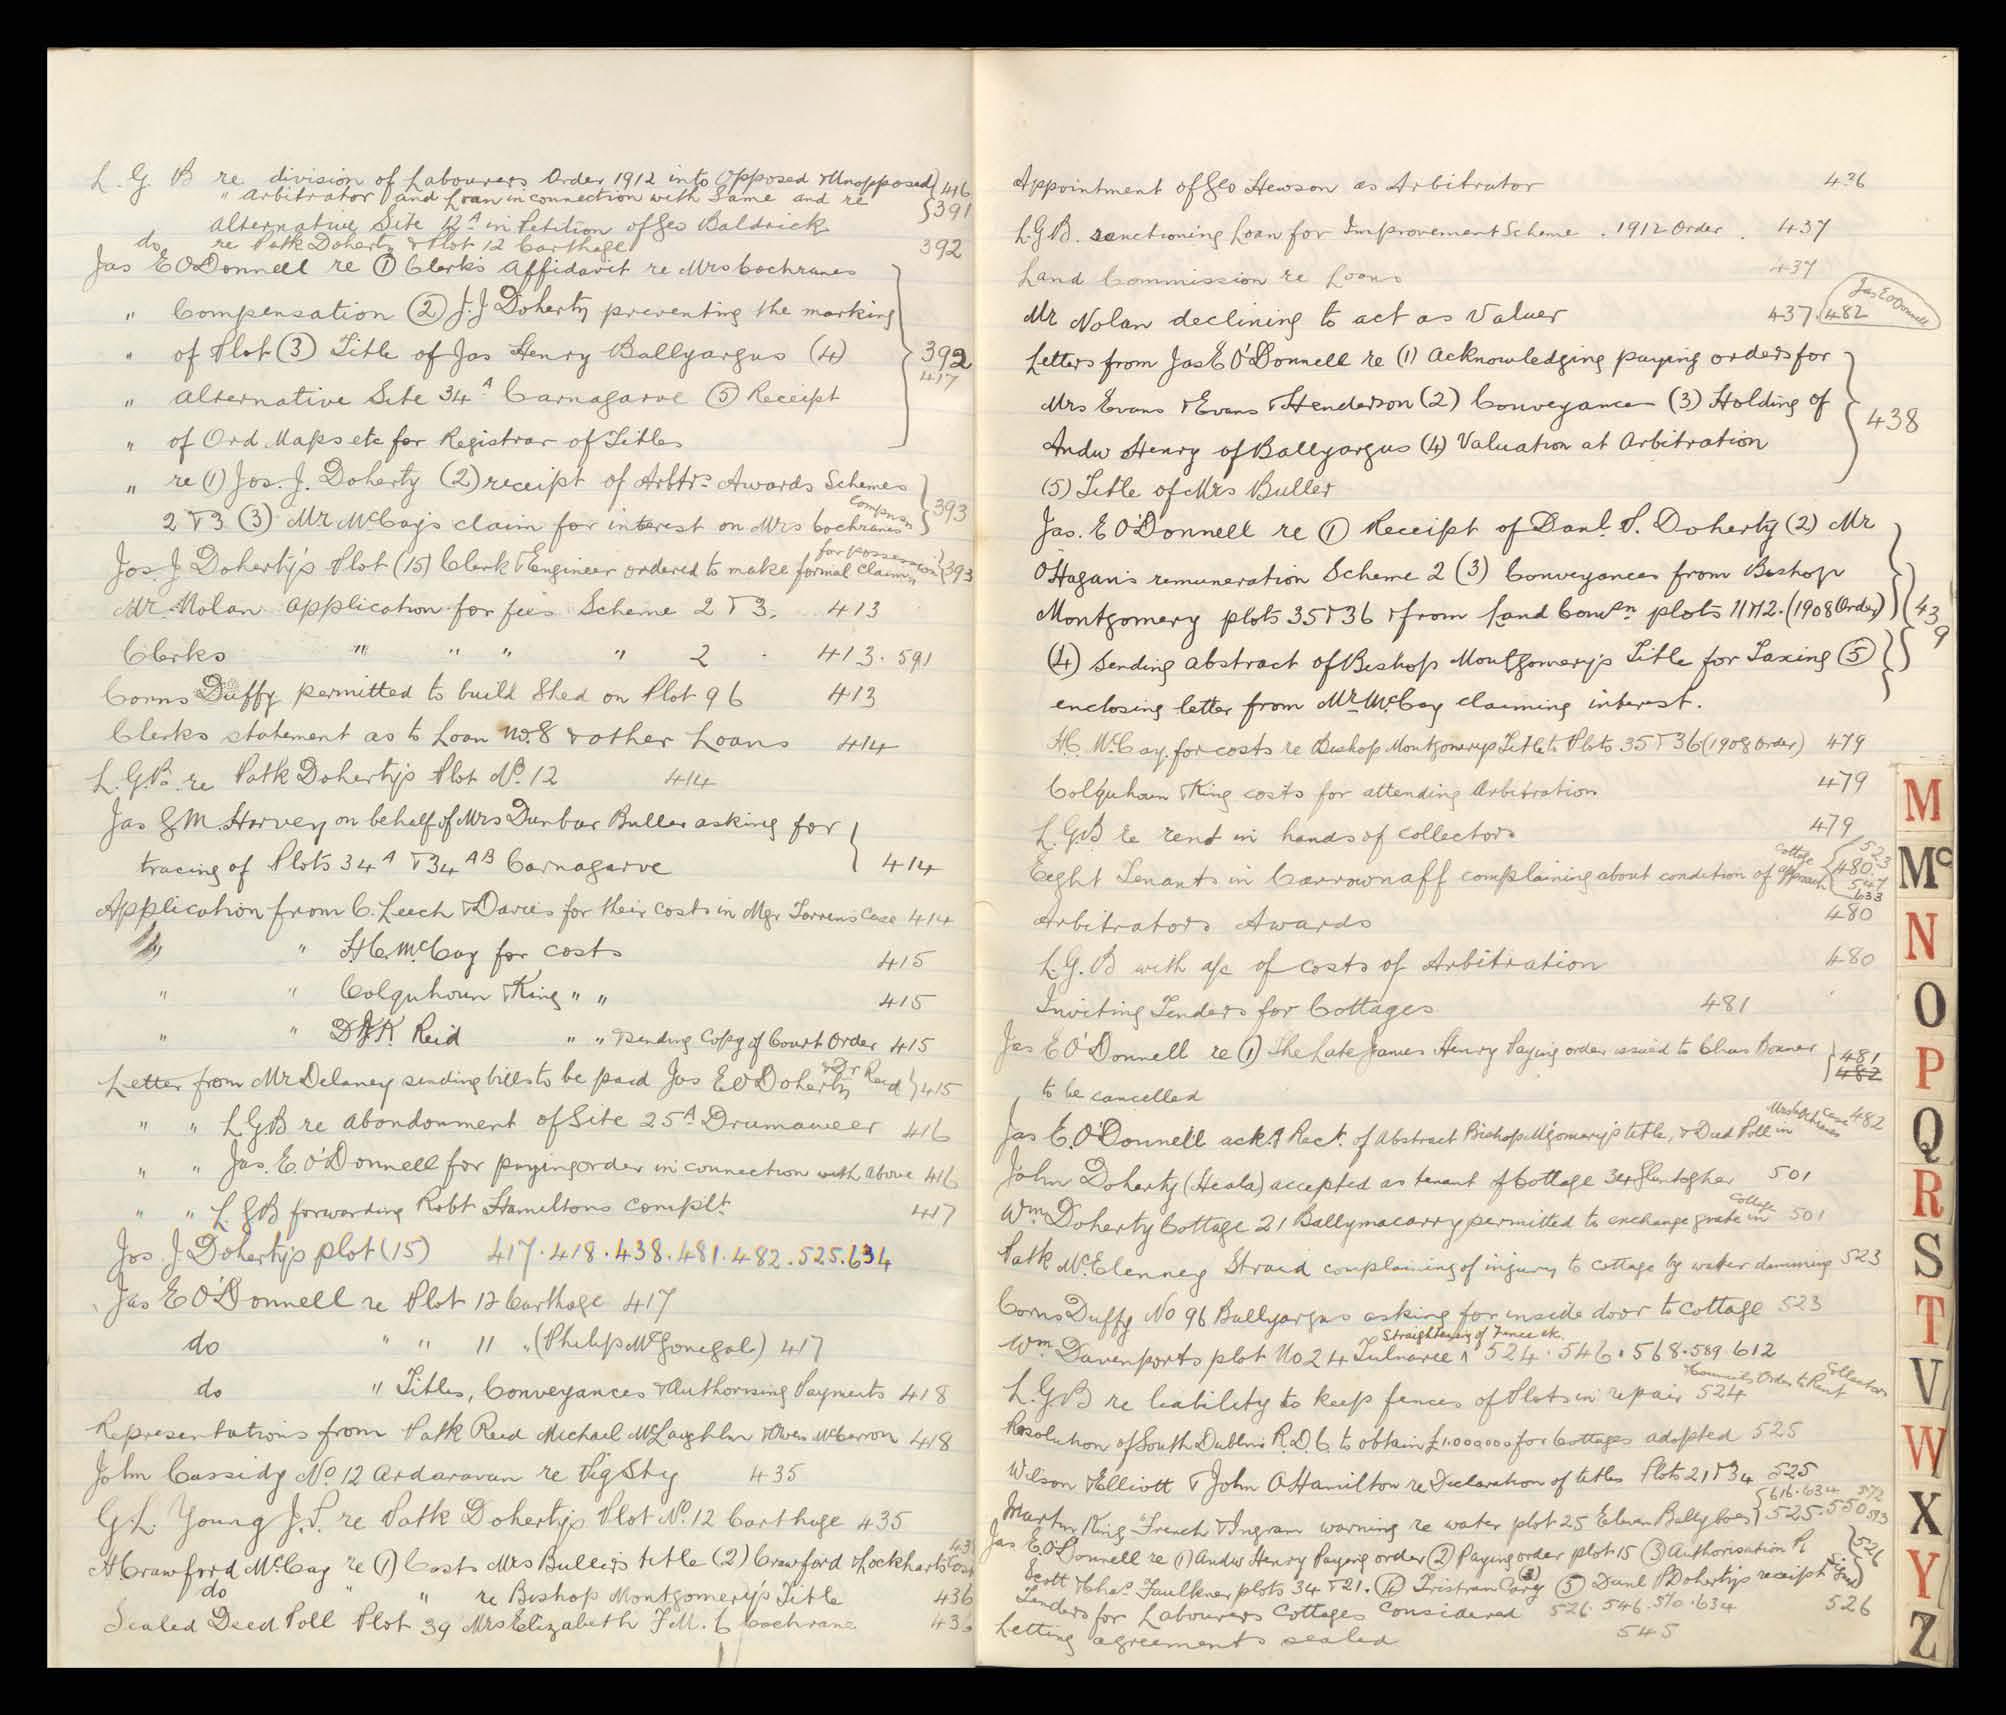 L. G. B re division of Labourers Order 1912 into Opposed & Unopposed } 416
" Arbitrator and Loan in connection with Same and re } 391
alternative Site 12A in Petition of Geo Baldrick
do re Patk Doherty & Plot 12 Carthage 392
Jas E O'Donnell re (1) Clerk's Affidavit re Mrs Cochranes
" Compensation (2) J. J Doherty preventing the marking
" of Plot (3) Title of Jas Henry Ballyargus (4) 392
417
" alternative Site 34A Carnagarve (5) Receipt
" of Ord. Maps etc for Registrar of Titles
" re (1) Jos. J. Doherty (2) receipt of Arbtrs Awards Schemes
2 & 3 (3) Mr McCay's claim for interest on Mrs Cochranes Compensn } 393
Jos. J Doherty's Plot (15) Clerk & Engineer ordered to make formal claim for possession } 393
Mr Nolan application for fees Scheme 2 & 3. 413
Clerks " " " " 2 413. 591
Corns Duffy permitted to build Shed on Plot 96 413
Clerks statement as to Loan No. 8 & other Loans 414
L. G. B. re Patk Doherty's Plot No. 12 414
Jas G M. Harvey on behalf of Mrs Dunbar Buller asking for
tracing of Plots 34A & 34AB Carnagarve } 414
Application from C. Leech & Davies for their costs in Mgr Torrens Case 414
" H.C. McCay for costs 415
" " Colquhoun & King " " 415
" " D Reid " " & sending Copy of Court Order 415
Letter from Mr Delaney sending bills to be paid Jas E O'Doherty & Dr Reid } 415
" " LGB re abandonment of Site 25A Drumaweer 416
" " Jas. E. O'Donnell for paying order in connection with above 416
" " L G B forwarding Robt Hamiltons complt. 417
Jos. J Doherty's plot (15) 417. 418. 438. 481. 482. 525. 634
Jas E O'Donnell re Plot 12 Carthage 417
do " " 11 " (Philip McGonegal) 417
do " Titles, Conveyances & Authorising Payments 418
Representations from Patk Reed Michael McLaughlin & Owen McCarron 418
John Cassidy No. 12 Ardaravan re Pig Sty 435
G. L. Young J. P. re Patk Doherty's Plot No. 12 Carthage 435
H Crawford McCay re (1) Costs Mrs Buller's title (2) Crawford & Lockharts Cost
do " " re Bishop Montgomery's Title 436
Sealed Deed Poll Plot 39 Mrs Elizabeth F M. C Cochrane 436
Appointment of Geo Hewson as Arbitrator 436
L. G. B. sanctioning Loan for Improvement Scheme. 1912 Order. 437
Land Commission re Loans 437
Mr Nolan declining to act as Valuer 437. 482 Jas E O'Donnell
Letters from Jas E O'Donnell re (1) Acknowledging paying orders for
Mrs Evans & Evans & Henderson (2) Conveyance (3) Holding of
Andw Henry of Ballyargus (4) Valuation at Arbitration } 438
(5) Title of Mrs Buller
Jas. E O'Donnell re (1) Receipt of Danl. P. Doherty (2) Mr
O'Hagan's remuneration Scheme 2 (3) Conveyances from Bishop
Montgomery plots 35 & 36 & from Land Comsn plots 11 & 12. (1908 Order) 439
(4) Sending abstract of Bishop Montgomery's Title for Taxing (5)
enclosing letter from Mr McCay claiming interest.
H.C. McCay. for costs re Bishop Montgomerys Title to Plots 35 & 36 (1908 Order) 479
Colquhoun & King costs for attending Arbitration 479
L. G. B re rent in hands of collectors 479
Eight Tenants in Carrownaff complaining about condition of Cottage approach 523 480. 547 633
Arbitrators Awards 480
L. G. B with a/c of costs of Arbitration 480
Inviting Tenders for Cottages 481
Jas E O'Donnell re (1) The Late James Henry Paying order issued to Chas Bonner } 481
482
to be cancelled
Jas E. O'Donnell ackg Rect. of Abstract Bishop Mgomery's title, & Deed Poll in Mrs Cochranes Case 482
John Doherty (Heala) accepted as tenant of Cottage 34 Glentogher 501
Wm Doherty Cottage 21 Ballymacarry permitted to exchange grate in Cottage 501
Patk McElenney Straid complaining of injury to cottage by water damming 523
Corns Duffy No 96 Ballyargus asking for inside door to Cottage 523
Wm Davenports plot No 24 Tulnaree Straightening of Fence etc. 524. 546. 568. 589. 612
L. G B re liability to keep fences of Plots in repair 524 Councils Order to Rent Collectors
Resolution of South Dublin R. D. C. to obtain £1.000000 for Cottages adopted 525
Wilson & Elliott & John O Hamilton re Declaration of titles Plots 21 & 34 525
Martin King French & Ingram warning re water plot 25 Eleven Ballyboes } 616. 634 572 525. 550 593
Jas E. O'Donnell re (1) Andw Henry Paying order (2) Paying order plot 15 (3) Authorisation } 526
Scott & Chas. Faulkner plots 34 & 21. (4) Tristram Cary (5) Danl P Doherty's receipt
Tenders for Labourers Cottages considered 526. 546. 570. 634 526
Letting agreements sealed 545
M
Mc
N
O
P
Q
R
S
T
V
W
X
Y
Z